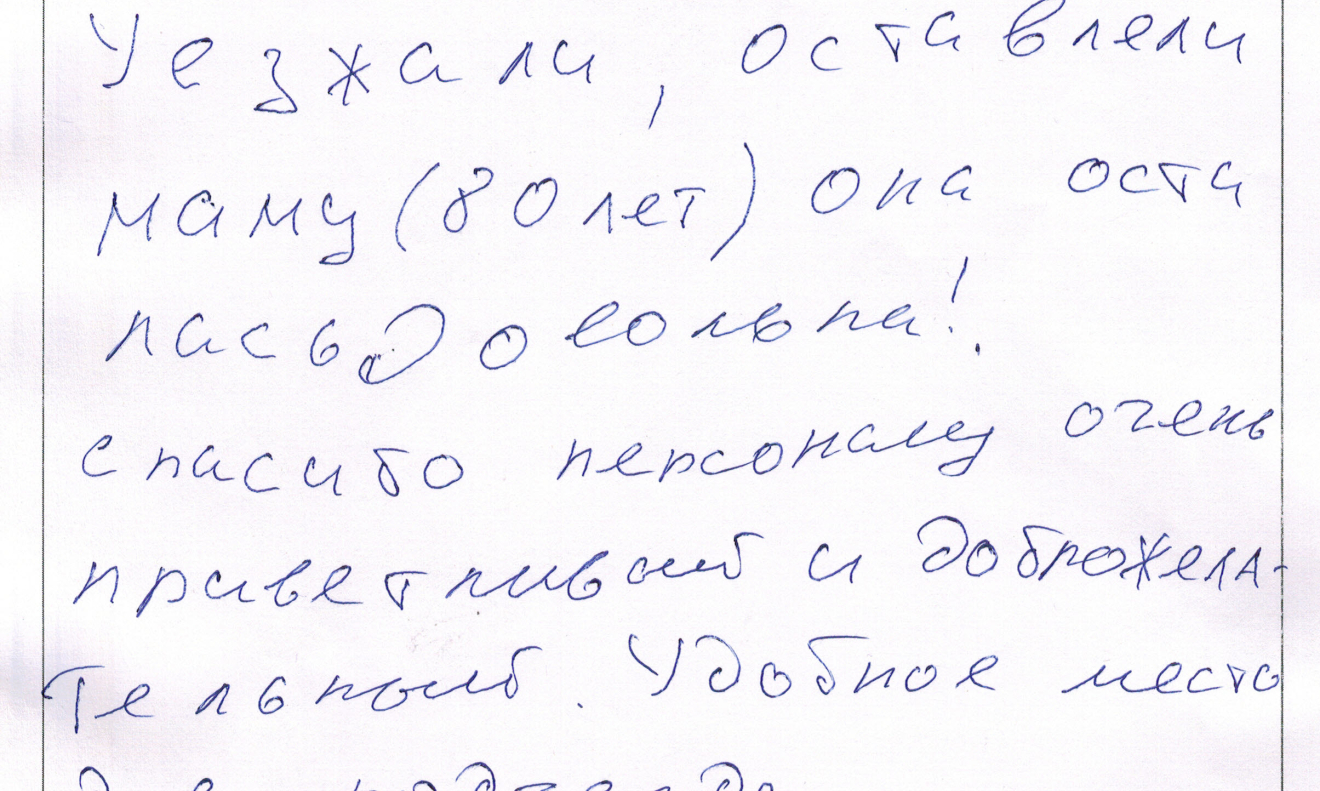 Уезжали, оставляли
маму (80 лет) она оста
лась довольна!
спасибо персоналу очень
приветливый и доброжела-
тельный. Удобное место